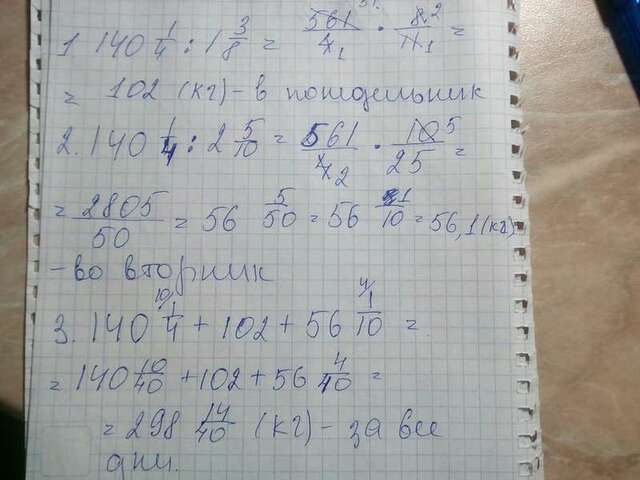 1 140 1/4 : 1 3/8 = 561/4 1 · 8 2/11 1 =
= 102 (кг) - в понедельник
2. 140 1/4 : 2 5/10 = 561/4 2 · 10 5/25 =
= 2805/50 = 56 5/50 = 56 1/10 = 56,1 (кг)
- во вторник
3. 140 10/ 1/4 + 102 + 56 4/ 1/10 =
= 140 10/40 + 102 + 56 4/40 =
= 298 14/40 (кг) - за все
дни.